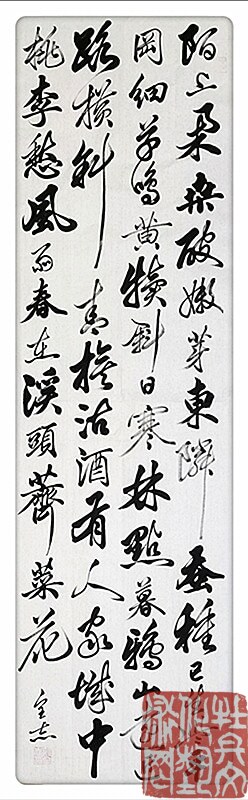 陌上柔桑破嫩芽東隣蚕種已生些平
岡細草鳴黃犢斜日寒林點暮鴉山遠近
路橫斜青旗沽酒有人家城中
桃李愁風雨春在溪頭薺菜花